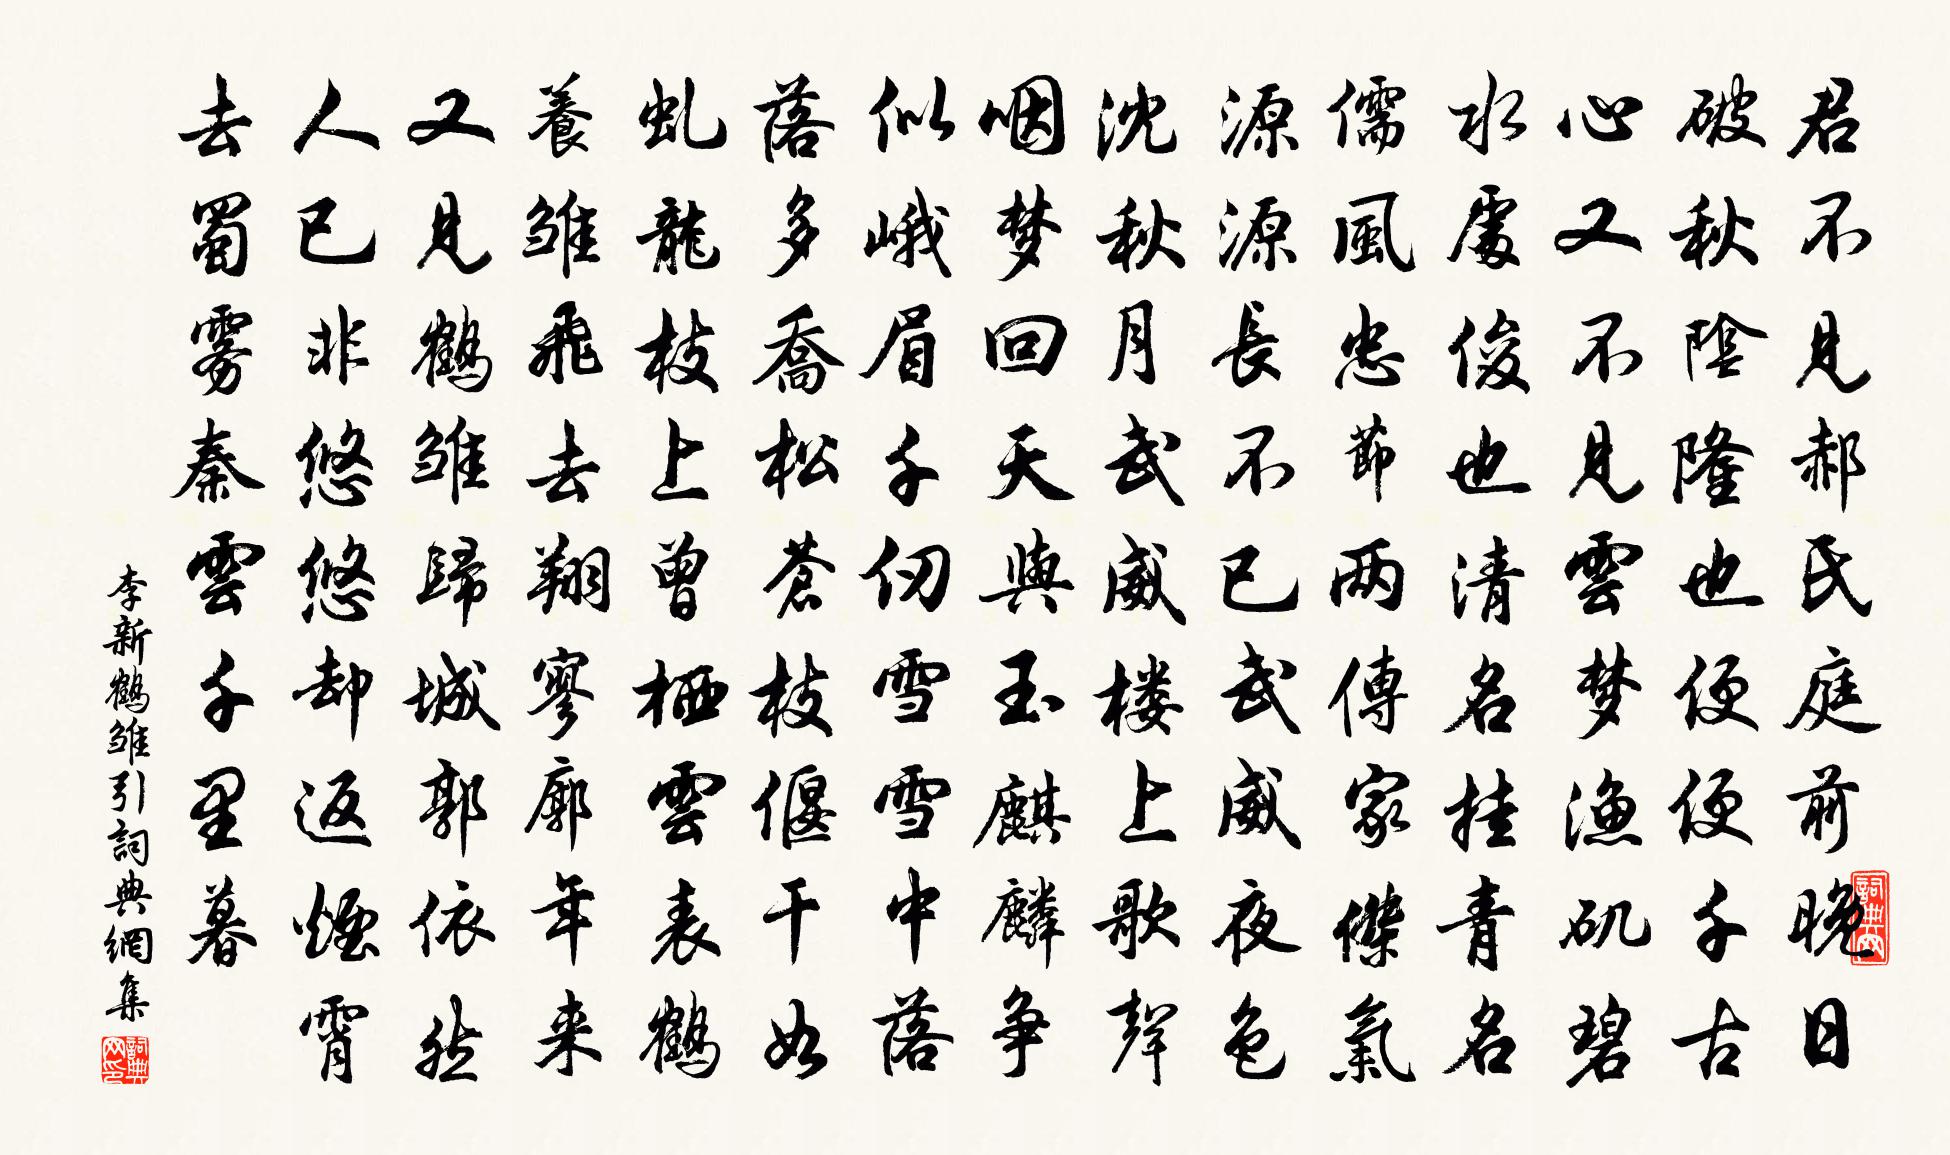 君不見郝氏庭前晚日
破秋陰隆也便便千古
心又不見雲梦漁矶碧
水處俊也清名挂青名
儒風忠節两傳家傑氣
源源長不已武威夜色
沈秋月武威楼上歌聲
咽梦回天與玉麒麟争
似峨眉千仞雪雪中落
落多喬松蒼枝偃干如
虬龍枝上曾栖雲表鶴
養雏飛去翔寥廓年来
又見鶴雏歸城郭依然
人已非悠悠却返煙霄
去蜀雾秦雲千里暮
李新鶴雏引詞典網集
詞典网
詞典网印